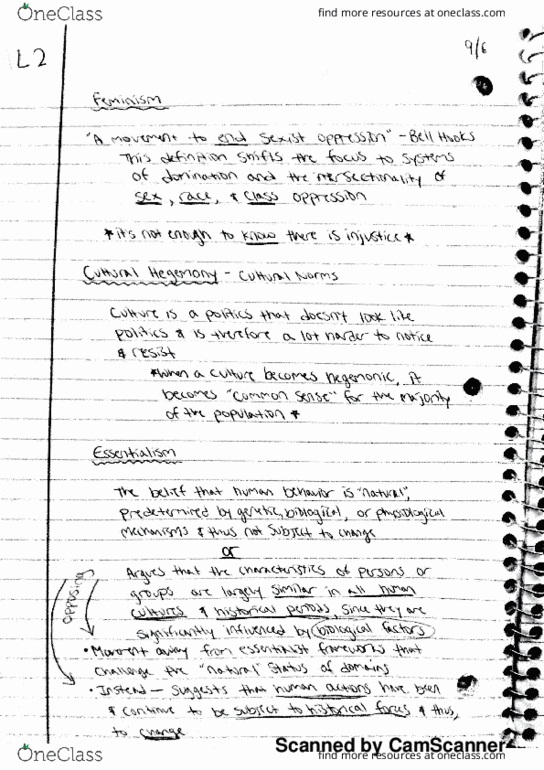 OneClass
find more resources at oneclass.com
L2
9/6
Feminism
"A movement to end sexist oppression" - Bell Hooks
This definition shifts the focus to systems
of domination and the intersectionality of
sex, race, & class oppression
*it's not enough to know there is injustice*
Cultural Hegemony - Cultural Norms
Culture is a politics that doesn't look like
politics & is therefore a lot harder to notice
& resist
*When a culture becomes hegemonic, it
becomes "common sense" for the majority
of the population *
Essentialism
The belief that human behavior is "natural",
predetermined by genetic, biological, or physiological
mechanisms & thus not subject to change
or
Argues that the characteristics of persons or
groups are largely similar in all human
cultures & historical periods, since they are
significantly influenced by biological factors
opposing
• Movement away from essentialist frameworks that
challenge the "natural" status of domains
• Instead - suggests that human actions have been
& continue to be subject to historical forces & thus,
to change
Scanned by CamScanner
OneClass
find more resources at oneclass.com